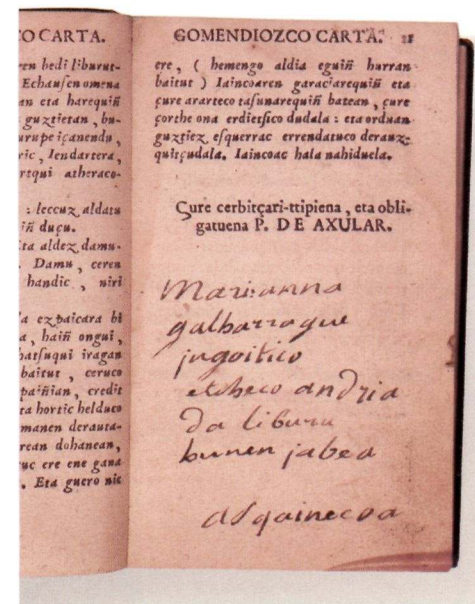 CO CARTA.
ren hedi liburut-
Echausen omena
an eta harequiñ
guztietan, bu-
urupe içanendu,
ric, Iendartera,
rtqui atheraco-
: leccuz aldatu
iñ duçu.
ta aldez damu-
. Damu, ceren
handic, niri
a ezpaicara hi
a, haiñ ongui,
hatsuqui iragan
baitut, ceruco
paiñian, credit
ta hortic helduco
manen derauta-
rean dohanean,
uc ere ene gana
. Eta guero nic
GOMENDIOZCO CARTA. 11
ere, ( hemengo aldia eguiñ hurran
baitut ) Iaincoaren garaciarequiñ eta
çure ararteco tasunarequiñ batean, çure
çorthe ona erdietsico dudala : eta orduan
guztiez esquerrac errendatuco derauz-
quitçudala. Iaincoac hala nahiduela.
Çure cerbitçari-ttipiena, eta obli-
gatuena P. DE AXULAR.
Marianna
galharrague
jngoitico
etcheco andria
da liburu
hunen jabea
asquinecoa